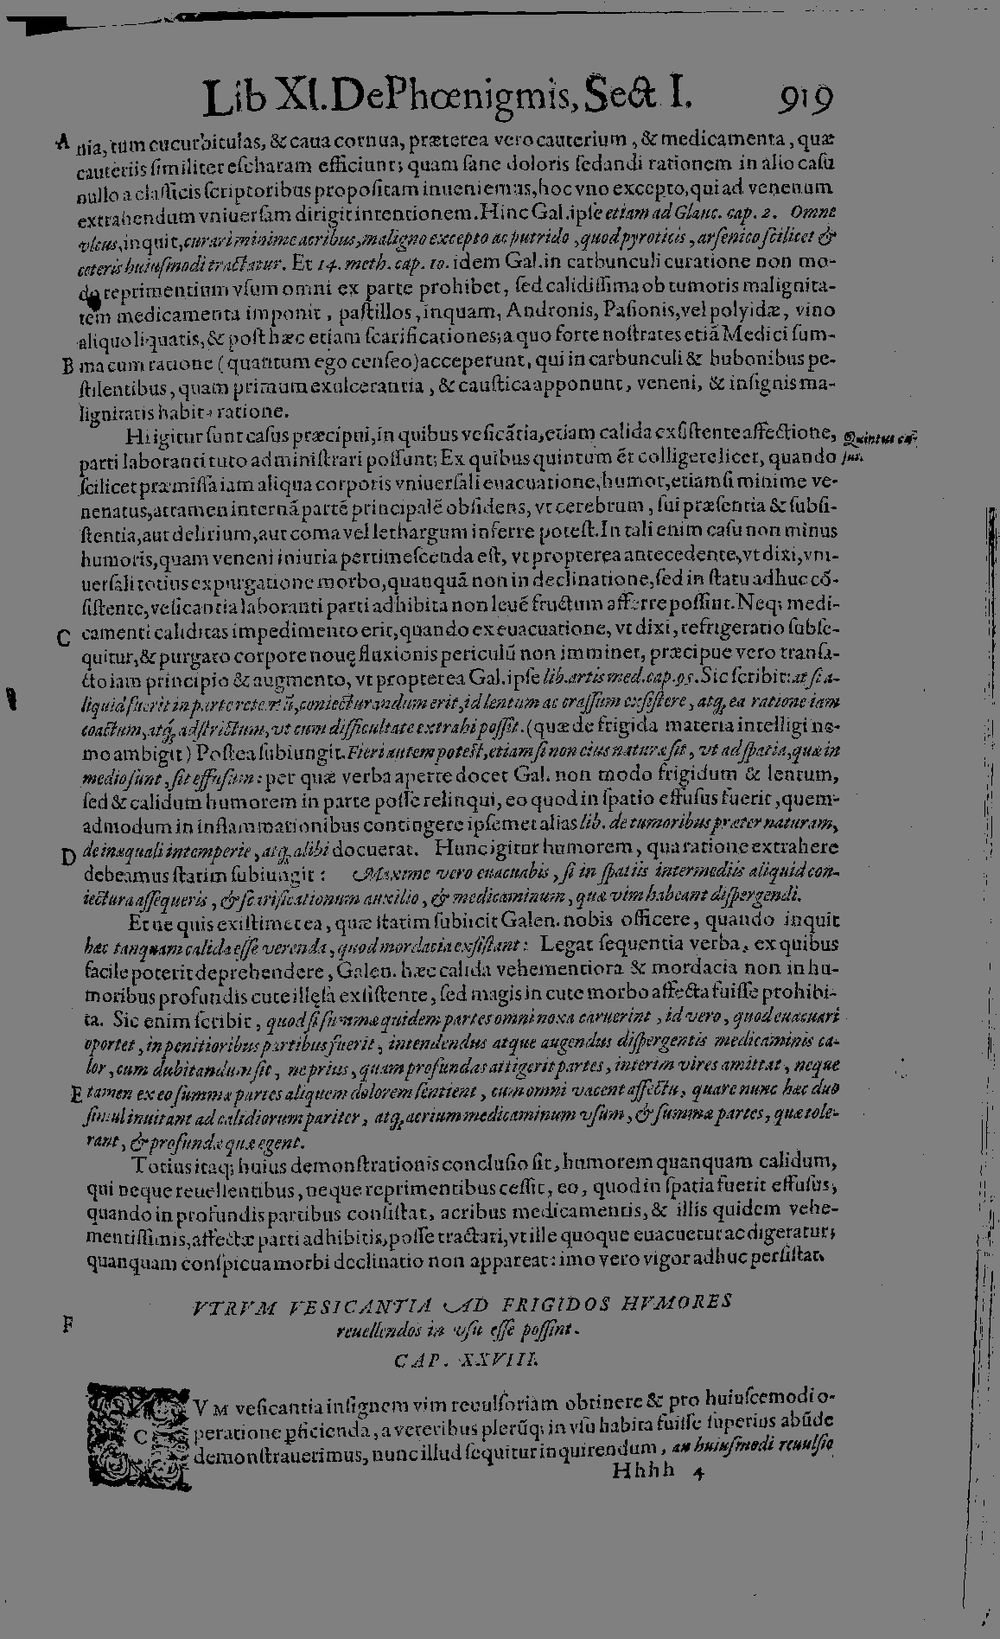 Lib XI. De Phœnigmis, Sect I. 919
A nia, tum cucurbitulas, & caua cornua, præterea vero cauterium, & medicamenta, quæ
cauteriis similiter escharam efficiunt; quam sane doloris sedandi rationem in alio casu
nullo a classicis scriptoribus propositam inueniemus, hoc vno excepto, qui ad venenum
extrahendum vniuersam dirigit intentionem. Hinc Gal. ipse etiam ad Glauc. cap. 2. Omne
vlcus, inquit, curari minime acribus, maligno excepto ac putrido, quod pyroticis, arsenico scilicet &
ceteris huiusmodi tractatur. Et 14. meth. cap. 10. idem Gal. in carbunculi curatione non mo-
do reprimentium vsum omni ex parte prohibet, sed calidissima ob tumoris malignita-
tem medicamenta imponit, pastillos, inquam, Andronis, Pasionis, vel polyidæ, vino
aliquo liquatis, & post hæc etiam scarificationes; a quo forte nostrates etiã Medici sum-
B ma cum ratione (quantum ego censeo) acceperunt, qui in carbunculi & bubonibus pe-
stilentibus, quam primum exulcerantia, & caustica apponunt, veneni, & insignis ma-
lignitatis habita ratione.
Hi igitur sunt casus præcipui, in quibus vesicãtia, etiam calida exsistente affectione,
Quintus ca-
sus.
parti laboranti tuto administrari possunt; Ex quibus quintum ẽt colligere licet, quando
scilicet præmissa iam aliqua corporis vniuersali euacuatione, humor, etiamsi minime ve-
nenatus, attamen internã partẽ principalẽ obsidens, vt cerebrum, sui præsentia & subsi-
stentia, aut delirium, aut coma vel lethargum inferre potest. In tali enim casu non minus
humoris, quam veneni iniuria pertimescenda est, vt propterea antecedente, vt dixi, vni-
uersali totius expurgatione morbo, quanquã non in declinatione, sed in statu adhuc cõ-
sistente, vesicantia laboranti parti adhibita non leuẽ fructum afferre possint. Neq; medi-
C camenti caliditas impedimento erit, quando ex euacuatione, vt dixi, refrigeratio subse-
quitur, & purgato corpore nouę fluxionis periculũ non imminet, præcipue vero transa-
cto iam principio & augmento, vt propterea Gal. ipse lib. artis med. cap. 95. Sic scribit: at si a-
liquid fuerit in parte retentũ, coniecturandum erit, id lentum ac crassum exsistere, atq; ea ratione iam
coactum, atq; adstrictum, vt cum difficultate extrahi possit. (quæ de frigida materia intelligi ne-
mo ambigit) Postea subiungit. Fieri autem potest, etiam si non eius naturæ sit, vt ad spatia, quæ in
medio sunt, sit effusum: per quæ verba aperte docet Gal. non modo frigidum & lentum,
sed & calidum humorem in parte posse relinqui, eo quod in spatio effusus fuerit, quem-
admodum in inflammationibus contingere ipsemet alias lib. de tumoribus præter naturam,
D de inæquali intemperie, atq; alibi docuerat. Hunc igitur humorem, qua ratione extrahere
debeamus statim subiungit: Maxime vero euacuabis, si in spatiis intermediis aliquid con-
iectura assequeris, & scarificationum auxilio, & medicaminum, quæ vim habeant dispergendi.
Et ne quis existimet ea, quæ statim subiicit Galen. nobis officere, quando inquit
hæc tanquam calida esse verenda, quod mordacia exsistant: Legat sequentia verba, ex quibus
facile poterit deprehendere, Galen. hæc calida vehementiora & mordacia non in hu-
moribus profundis cute illęsa exsistente, sed magis in cute morbo affecta fuisse prohibi-
ta. Sic enim scribit, quod si summæ quidem partes omni noxa caruerint, id vero, quod euacuari
oportet, in penitioribus partibus fuerit, intendendus atque augendus dispergentis medicaminis ca-
lor, cum dubitandum sit, ne prius, quam profundas attigerit partes, interim vires amittat, neque
E tamen ex eo summæ partes aliquem dolorem sentient, cum omni vacent affectu, quare nunc hæc duo
simul inuitant ad calidiorum pariter, atq; acrium medicaminum vsum, & summæ partes, quæ tole-
rant, & profundæ quæ egent.
Totius itaq; huius demonstrationis conclusio sit, humorem quanquam calidum,
qui neque reuellentibus, neque reprimentibus cessit, eo, quod in spatia fuerit effusus,
quando in profundis partibus consistat, acribus medicamentis, & illis quidem vehe-
mentissimis, affectæ parti adhibitis, posse tractari, vt ille quoque euacuetur ac digeratur;
quanquam conspicua morbi declinatio non appareat: imo vero vigor adhuc persistat.
VTRVM VESICANTIA AD FRIGIDOS HVMORES
F reuellendos in vsu esse possint.
CAP. XXVIII.
CVM vesicantia insignem vim reuulsoriam obtinere & pro huiuscemodi o-
peratione pficienda, a veteribus plerũq; in vsu habita fuisse superius abũde
demonstrauerimus, nunc illud sequitur inquirendum, an huiusmodi reuulsio
Hhhh 4